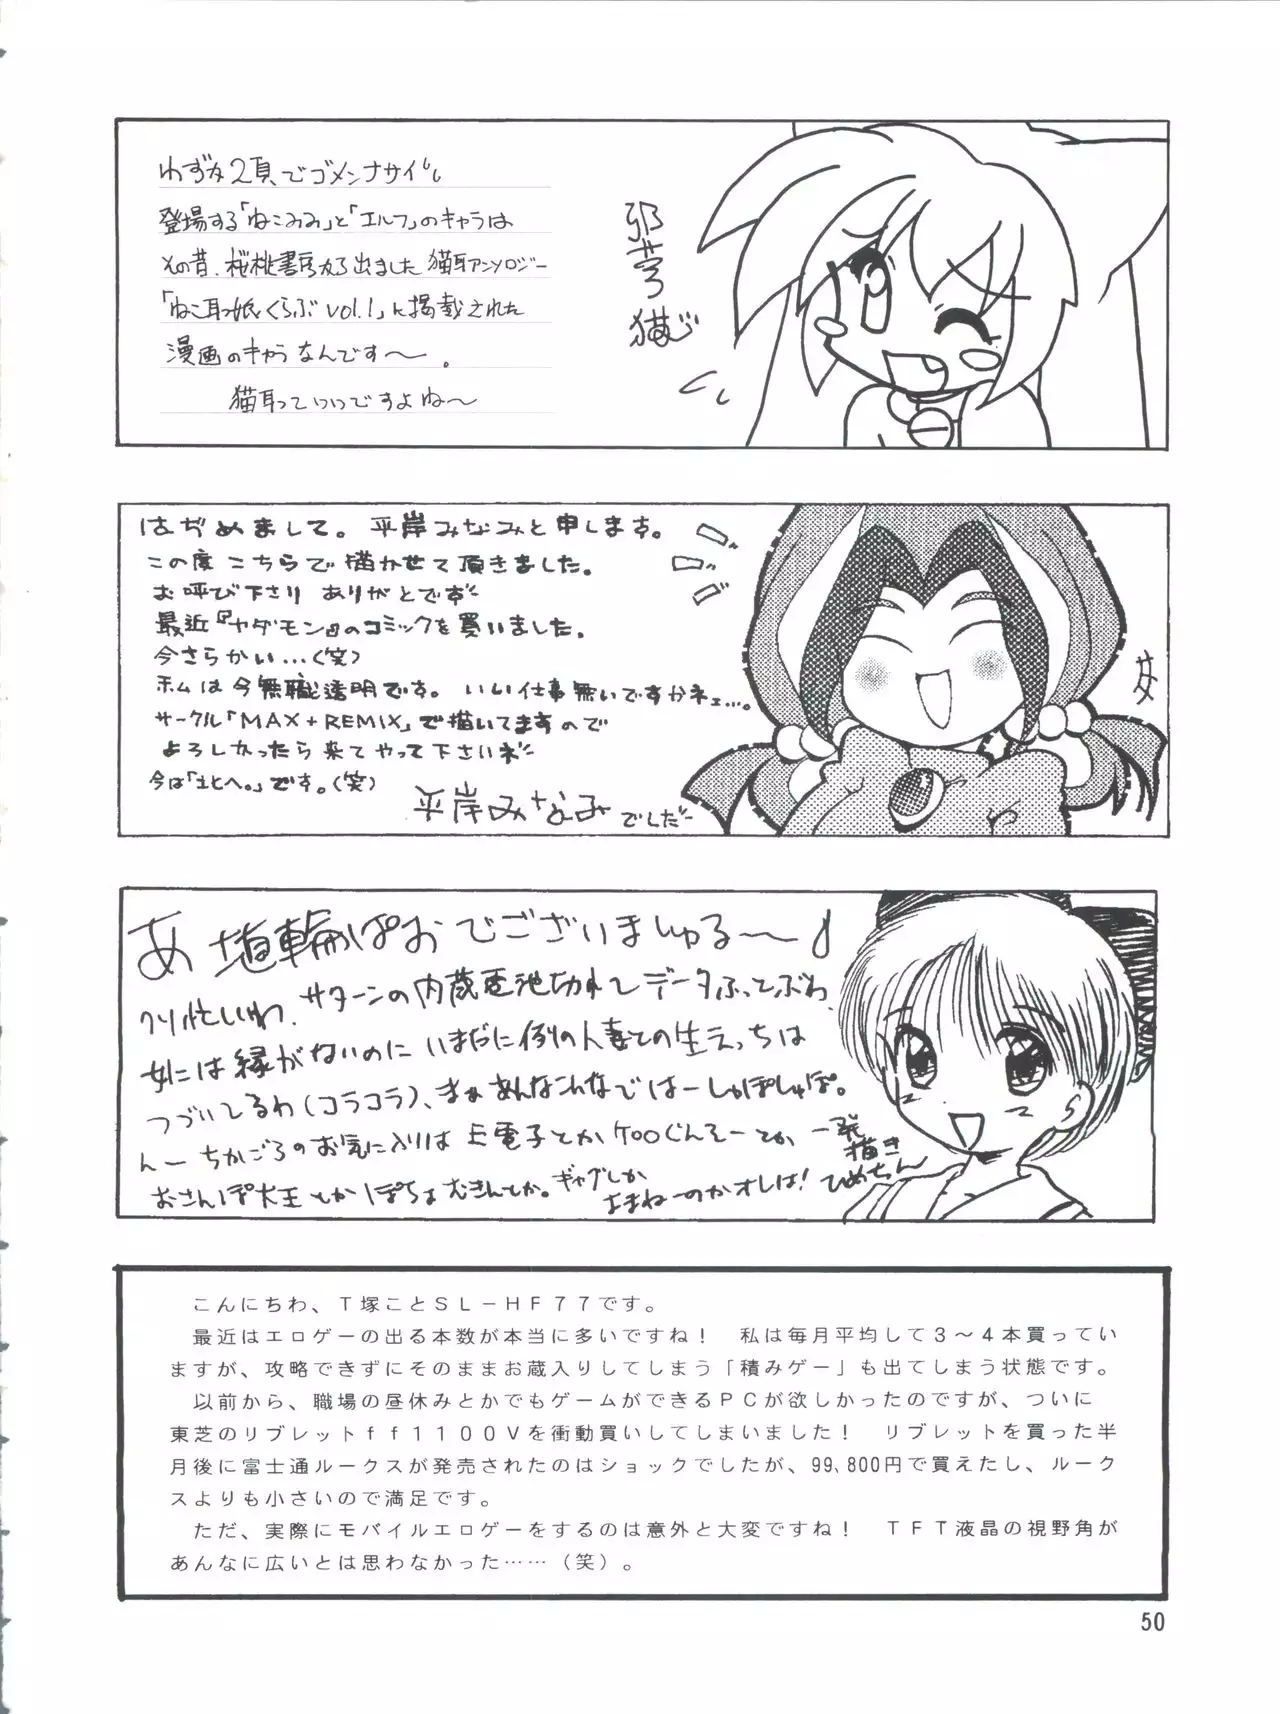 わずか2頁でゴメンナサイ
登場する「ねこみみ」と「エルフ」のキャラは
その昔、桜桃書房から出ました猫耳アンソロジー
「ねこ耳っ娘くらぶ vol.1」に掲載された
漫画のキャラなんです〜。
猫耳っていいですよね〜
はぢめまして。平岸みなみと申します。
この度こちらで描かせて頂きました。
お呼び下さり ありがとです
最近『ヤダモン』のコミックを買いました。
今さらかい…(笑)
ホムは今無職透明です。いい仕事無いですかネェ…。
サークル「MAX+REMIX」で描いてますので
よろしかったら来てやって下さいネ
今は「北へ。」です。(笑)
平岸みなみでした
あ 埴輪ぱおでございましゅる〜♪
クソ忙しいわ、サターンの内蔵電池切れてデータふっとぶわ、
女には縁がないのにいまだに例の人妻との生えっちは
つづいてるわ(コラコラ)、まぁあんなこんなではーしゅぽしゅぽ。
んーちかごろのお気に入りは上電子とかケロロぐんそーとか
おさんぽ大王とかぽちょむきんとか。ギャグしか
よまねーのかオレは!
一発
描き
ひめちん
こんにちわ、T塚ことSL−HF77です。
最近はエロゲーの出る本数が本当に多いですね! 私は毎月平均して3〜4本買ってい
ますが、攻略できずにそのままお蔵入りしてしまう「積みゲー」も出てしまう状態です。
以前から、職場の昼休みとかでもゲームができるPCが欲しかったのですが、ついに
東芝のリブレットff1100Vを衝動買いしてしまいました! リブレットを買った半
月後に富士通ルークスが発売されたのはショックでしたが、99,800円で買えたし、ルーク
スよりも小さいので満足です。
ただ、実際にモバイルエロゲーをするのは意外と大変ですね! TFT液晶の視野角が
あんなに広いとは思わなかった……(笑)。
50